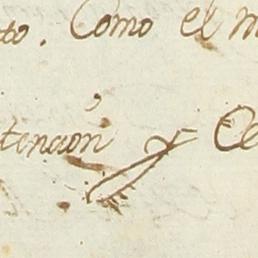 to. Como el m
tencion y Ce